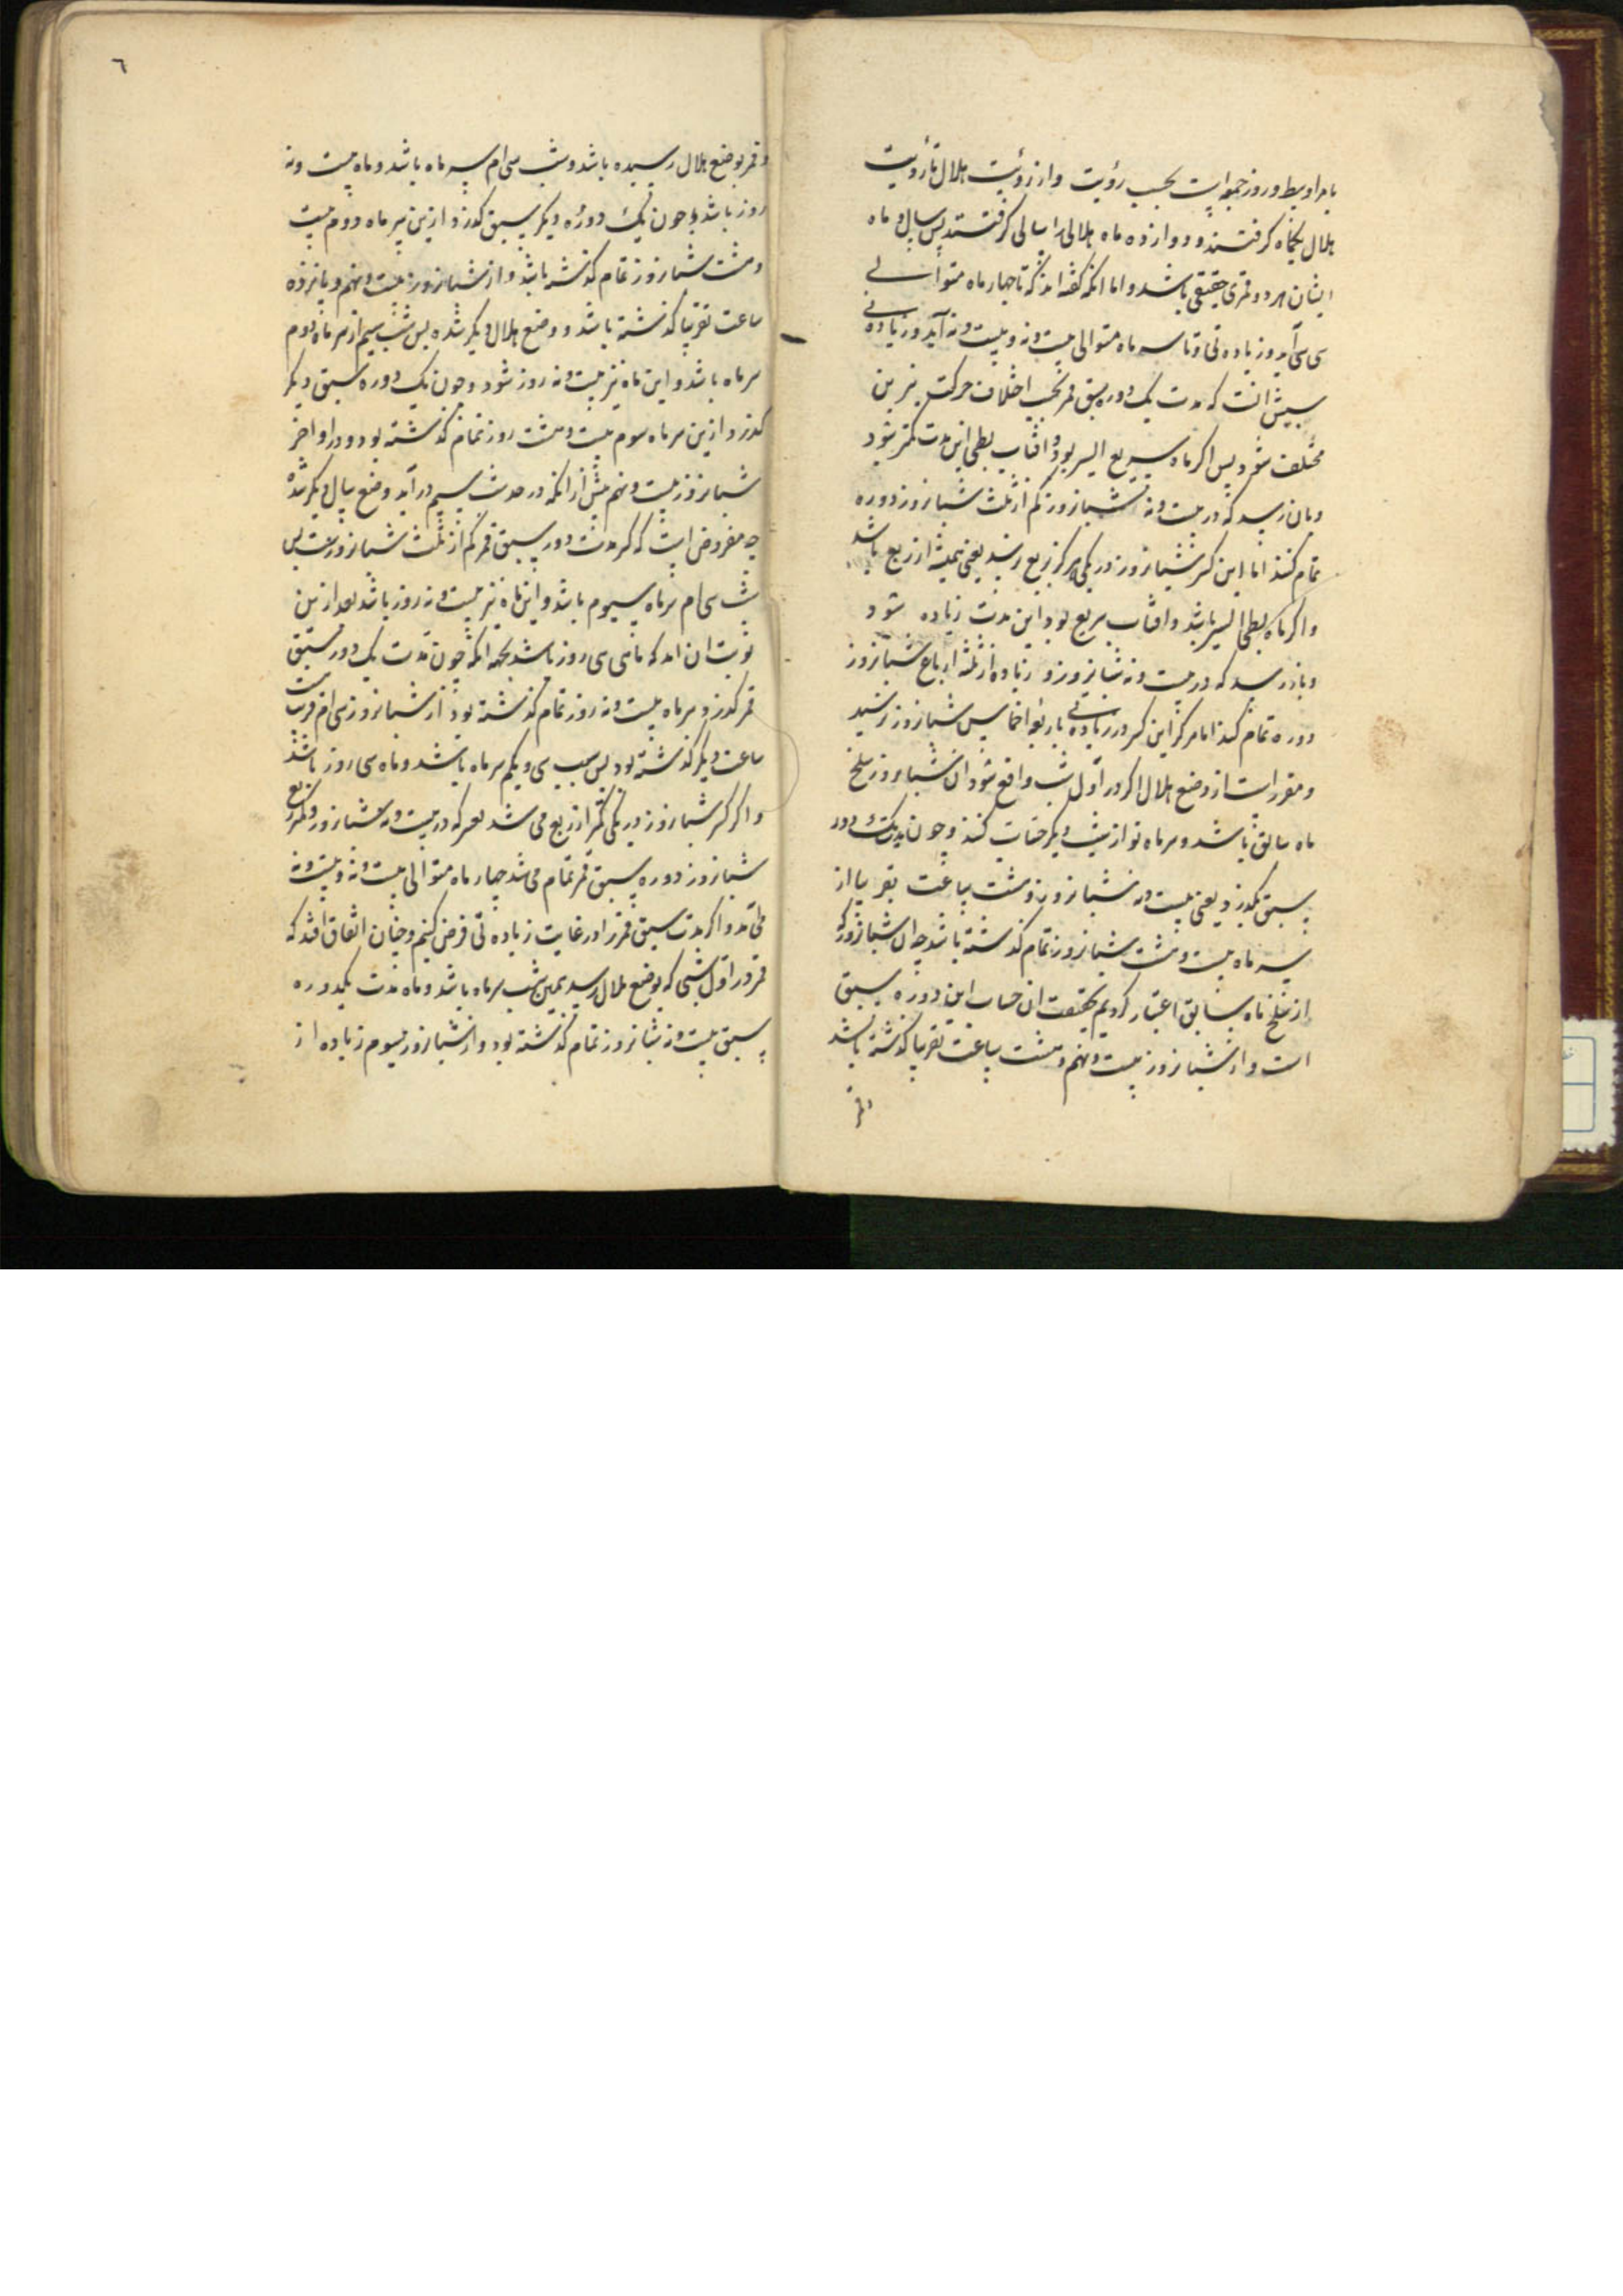 بامر اوسط و روز جمعه است بحسب رؤیت و از رؤیت هلال تا رؤیت
هلال یکماه گرفتند و دوازده ماه هلالی را سالی گرفتند پس سال و ماه
ایشان هر دو قمری حقیقی باشد و اما آنکه گفته اند که تا چهار ماه متوالی
سی سی آید و زیاده نی و تا سه ماه متوالی بیست و نه و بیست و نه آید و زیاده نی
سببش آنست که مدت یک دوره سبق قمر بحسب اختلاف حرکت نیرین
مختلف شود پس اگر ماه سریع السیر بود و آفتاب بطی این مدت کمتر شود
و بآن رسد که در بیست و نه شبانروز و کم از ثلث شبانروز دوره
تمام کند اما این کسر شبانروز در کمی هرگز بربع نرسد یعنی همیشه از ربع باشد
و اگر ماه بطی السیر باشد و آفتاب سریع بود این مدت زیاده شود
و باز رسد که در بیست و نه شبانروز و زیاده از ثلثه ارباع شبانروز
دوره تمام کند اما هرگز این کسر در زیادتی باربعه اخماس شبانروز نرسد
و مقرر است از وضع هلال اگر در اول شب واقع شود آن شبانروز سلخ
ماه سابق باشد و سر ماه نو از شب دیگر حساب کنند و چون مدت یک دور
سبق بگذرد یعنی بیست و نه شبانروز و هشت ساعت تقریبا از
سر ماه بیست و هشت شبانروز تمام گذشته باشد چه آن شبانروز که
از سلخ ماه سابق اعتبار کردیم بحقیقت از حساب این دوره سبق
است و از شبانروز بیست و نهم و هشت ساعت تقریبا گذشته باشد
و قمر
٦
و قمر بوضع هلال رسیده باشد و شب سی ام سر ماه باشد و ماه بیست و نه
روز باشد و چون یک دوره دیگر سبق گذرد ازین سر ماه دوم بیست
و هشت شبانروز تمام گذشته باشد و از شبانروز بیست و نهم و پانزده
ساعت تقریبا گذشته باشد و وضع هلال دیگر شده پس شب سیم از سر ماه دوم
سر ماه باشد و این ماه نیز بیست و نه روز شود و چون یک دوره سبق دیگر
گذرد ازین سر ماه سوم بیست و هشت روز تمام گذشته بود و در اواخر
شبانروز بیست و نهم پیش از آنکه در حد شب سیم در آید وضع هلال دیگر شده
چه مفروض است که کسر مدت دور سبق قمر کم از ثلث شبانروز است پس
شب سی ام سر ماه سیوم باشد و این ماه نیز بیست و نه روز باشد بعد ازین
نوبت آن آمد که ماهی سی روز باشد بجهه آنکه چون مدت یک دور سبق
قمر گذرد و سر ماه بیست و نه روز تمام گذشته بود از شبانروز سی ام قریب
ساعت دیگر گذشته بود پس شب سی و یکم سر ماه باشد و ماه سی روز باشد
و اگر کسر شبانروز در کمی کمتر از ربع می شد یعنی که در بیست و نه شبانروز و کمتر ربع
شبانروز دوره سبق قمر تمام می شد چهار ماه متوالی بیست و نه و بیست و نه
می آمد و اگر مدت سبق قمر را در غایت زیاده تی فرض کنیم و چنان اتفاق افتد که
قمر در اول شبی که بوضع هلال رسد همین شب سر ماه باشد و ماه مدت یکدوره
سبق بیست و نه شبانروز تمام گذشته بود و از شبانروز سیوم زیاده از